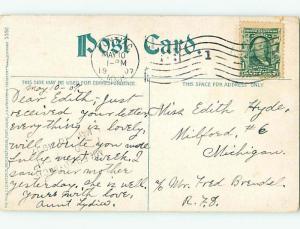 Post Card.
MAY 10
1-PM
1907
1
THIS SIDE MAY BE USED FOR CORRESPONDENCE.
THIS SPACE FOR ADDRESS ONLY.
May 10-07
Dear Edith; Just
received your letter
everything is lovely,
will write you more
fully next week. I
saw your mother
yesterday. She is well.
Yours with love,
Aunt Lydia
Miss Edith Hyde,
Milford, #6
Michigan.
c/o Mr. Fred Brendel.
R.F.D.